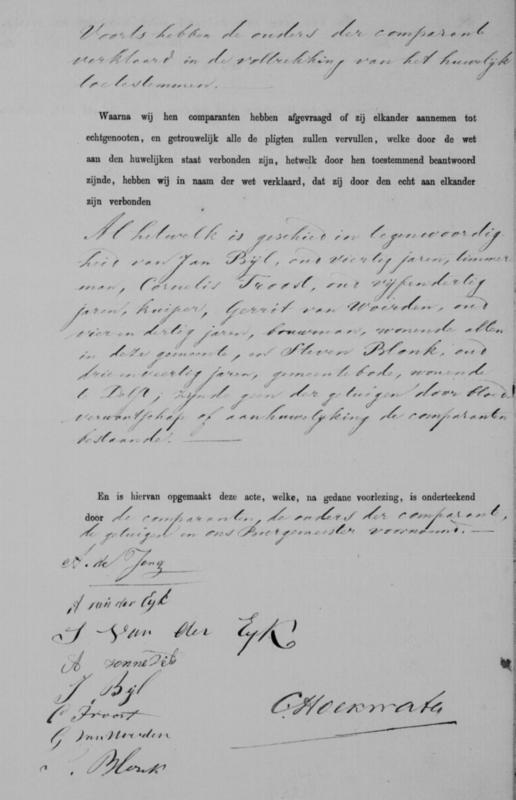 Voorts hebben de ouders der comparant
verklaard in de voltrekking van het huwelijk
toetestemmen.
Waarna wij hen comparanten hebben afgevraagd of zij elkander aannemen tot
echtgenooten, en getrouwelijk alle de pligten zullen vervullen, welke door de wet
aan den huwelijken staat verbonden zijn, hetwelk door hen toestemmend beantwoord
zijnde, hebben wij in naam der wet verklaard, dat zij door den echt aan elkander
zijn verbonden
Al hetwelk is geschied in tegenwoordig-
heid van Jan Bijl, oud veertig jaren, timmer
man, Cornelis Troost, oud vijfendertig
jaren, kuiper, Gerrit van Woerden, oud
vier en dertig jaren, bouwman, wonende allen
in deze gemeente, en Steven Blonk, oud
drie en veertig jaren, gemeentebode, wonende
te Delft; zijnde geen der getuigen door bloed
verwantschap of aanhuwelijking de comparanten
bestaande.
En is hiervan opgemaakt deze acte, welke, na gedane voorlezing, is onderteekend
door de comparanten, de ouders der comparant,
de getuigen en ons Burgemeester voornoemd.
A. de Jong
A van der Eyk
J Van der Eyk
A
J. Bijl
C Troost
G van Woerden
Blonk
C. Hoekwater